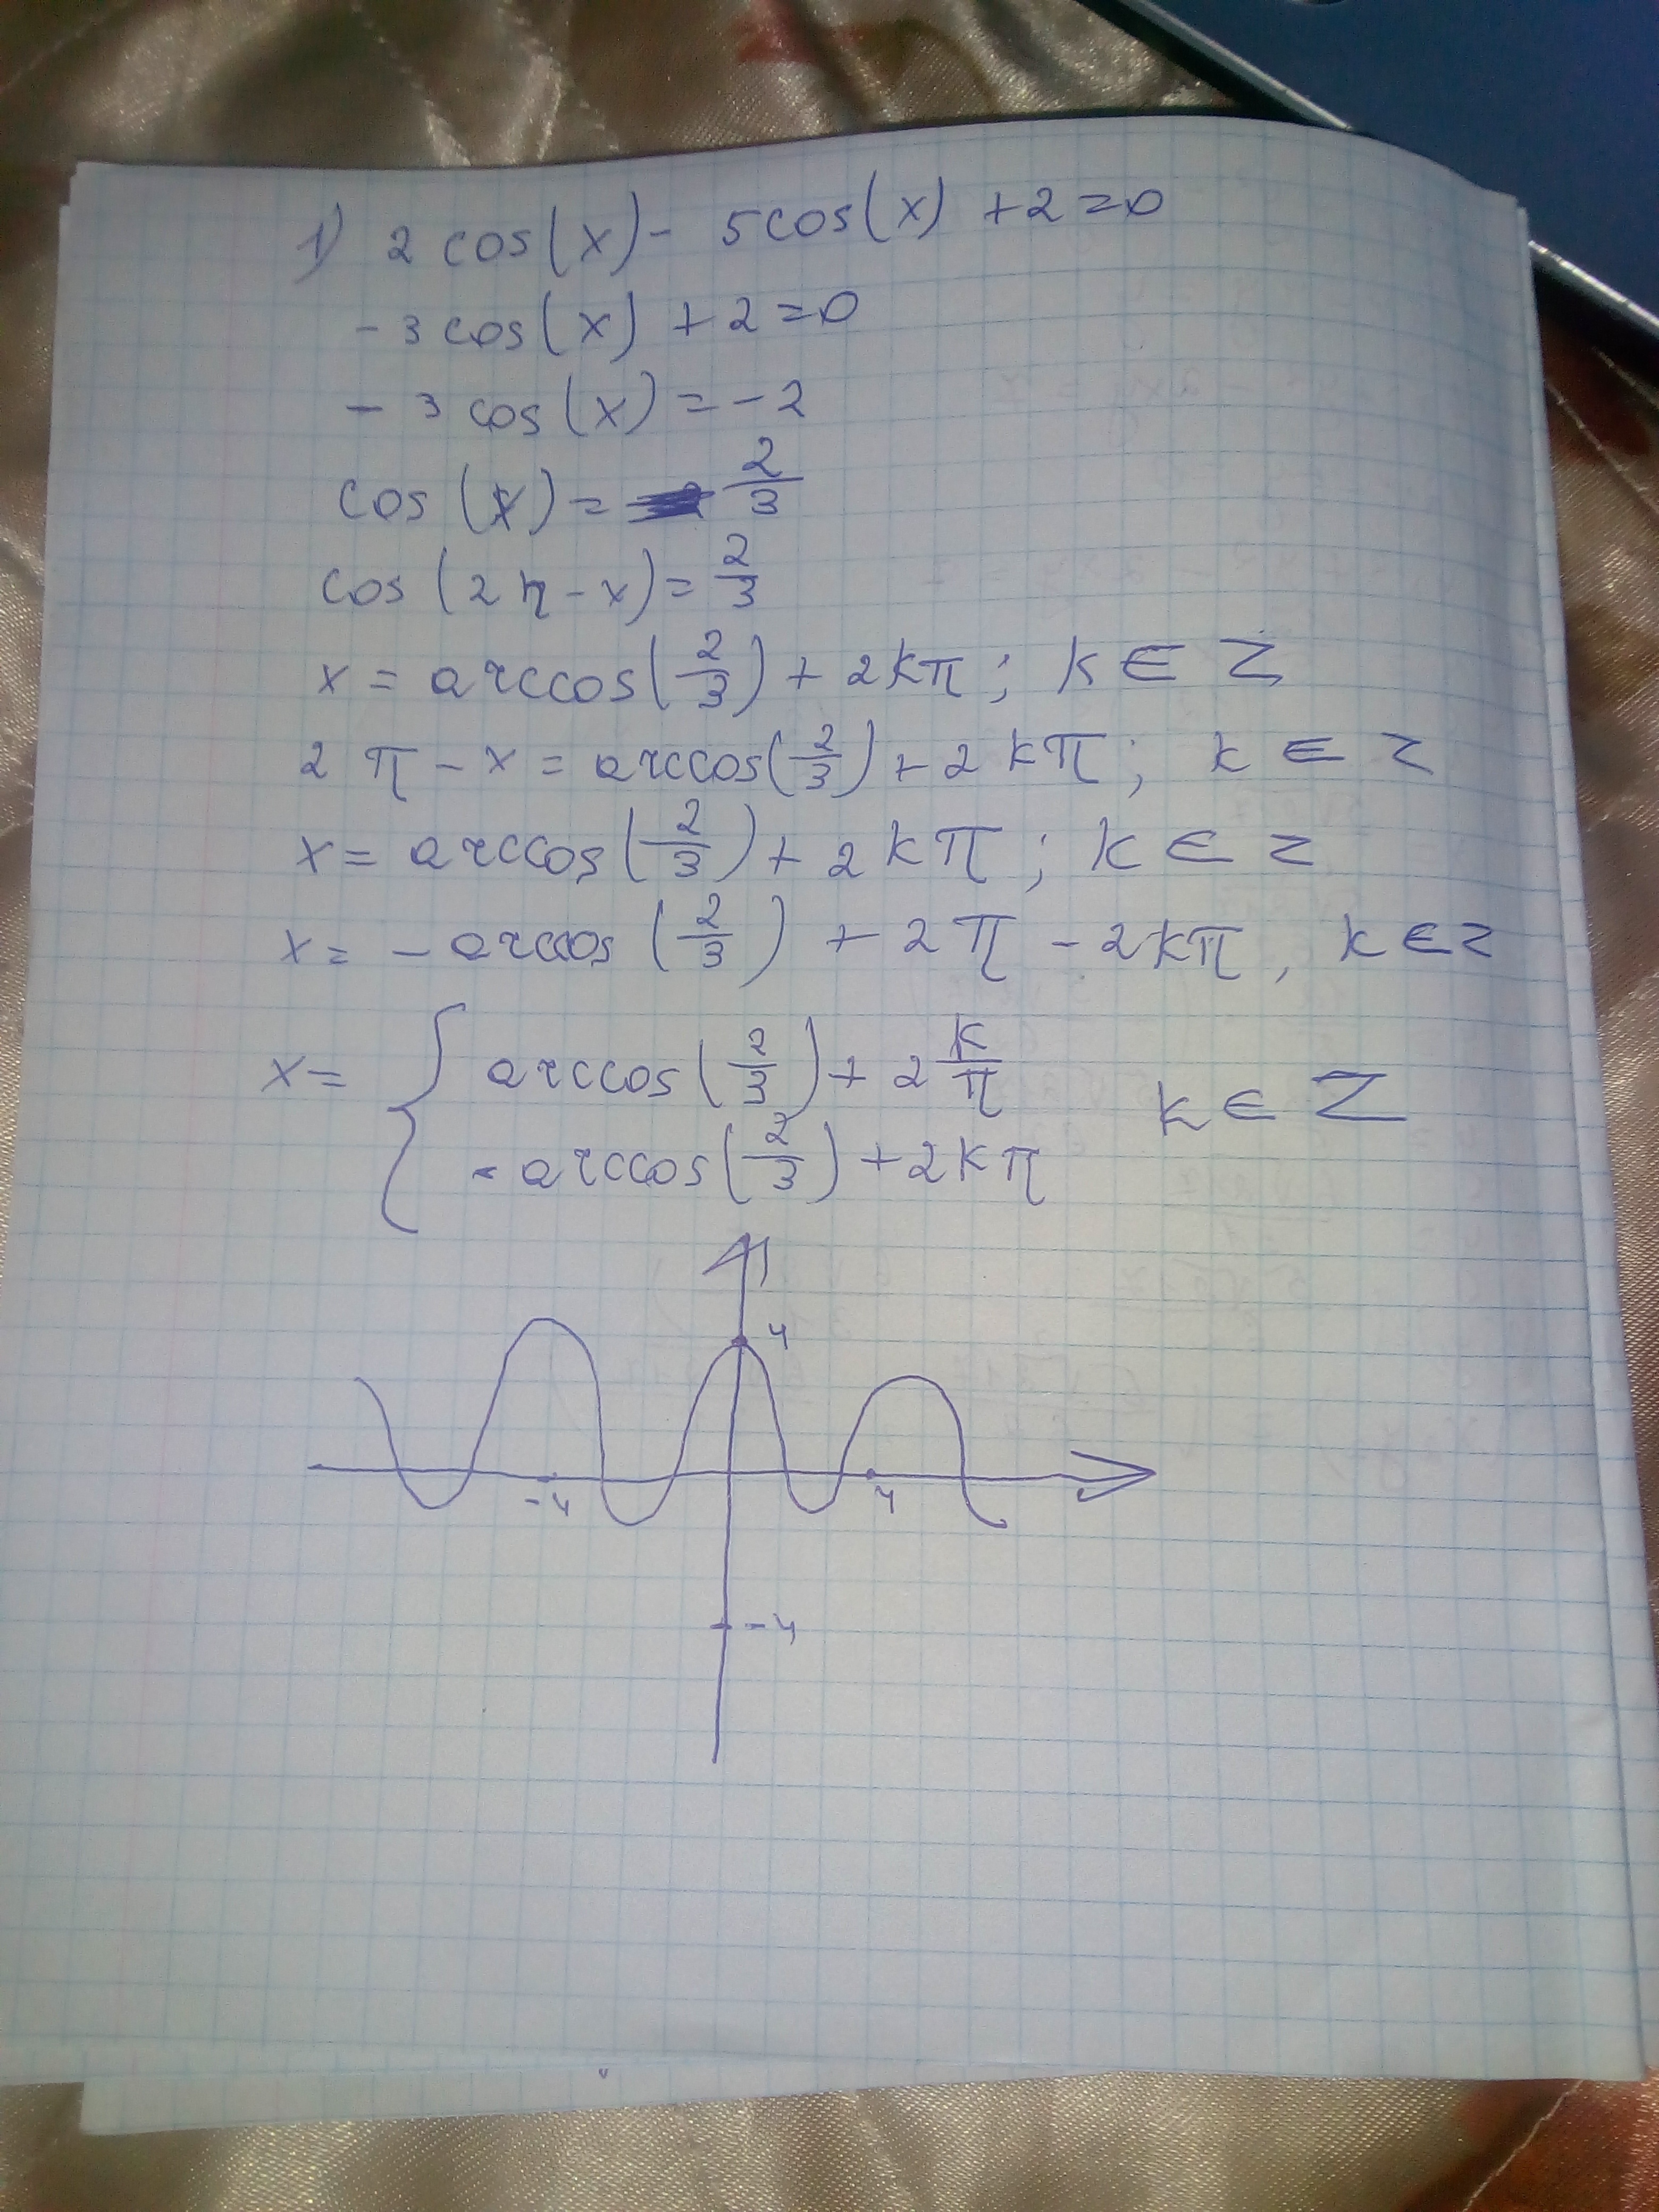 1) 2 cos(x) - 5cos(x) +2=0
-3cos(x) +2=0
- 3 cos(x) = -2
cos (x) = 2/3
cos (2π-x) = 2/3
x = arccos(2/3) + 2kπ ; k ∈ Z
2 π - x = arccos(2/3) + 2 kπ ; k ∈ Z
x = arccos(2/3) + 2 kπ ; k ∈ Z
x = - arccos (2/3) + 2π - 2kπ , k ∈ Z
x = { arccos(2/3) + 2 k/π
k ∈ Z
- arccos(2/3) + 2kπ
4
-4
4
-4